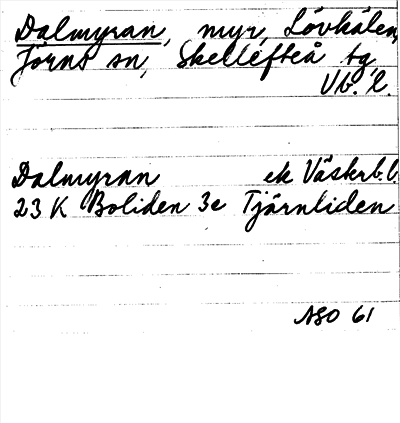 Dalmyran, myr, Lövhålen,
Jörns sn, Skellefteå tg
Vb. l.
Dalmyran ek Västerb. l.
23 K Boliden 3e Tjärnliden
ASO 61